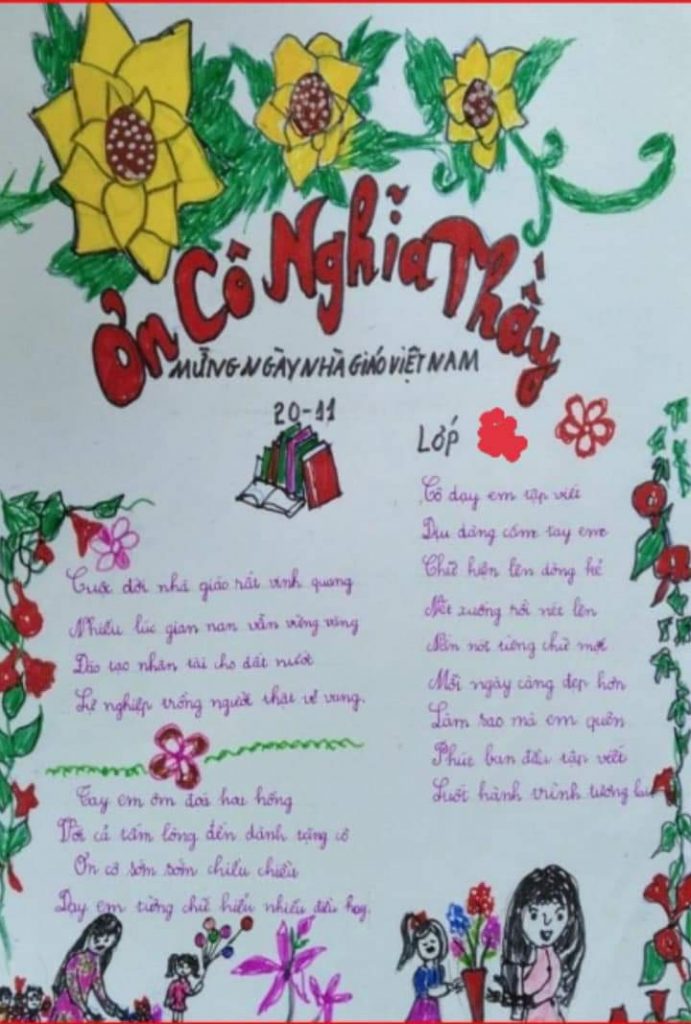 Ơn Cô Nghĩa Thầy
MỪNG NGÀY NHÀ GIÁO VIỆT NAM
20-11
LỚP
Cuộc đời nhà giáo rất vinh quang
Nhiều lúc gian nan vẫn vững vàng
Đào tạo nhân tài cho đất nước
Sự nghiệp trồng người thật vẻ vang.
Tay em ôm đoá hoa hồng
Với cả tấm lòng đến dành tặng cô
Ơn cô sớm sớm chiều chiều
Dạy em từng chữ hiểu nhiều điều hay.
Cô dạy em tập viết
Dịu dàng cầm tay em
Chữ hiện lên dòng kẻ
Nét xuống rồi nét lên
Nắn nót từng chữ một
Mỗi ngày càng đẹp hơn
Làm sao mà em quên
Phút ban đầu tập viết
Suốt hành trình tương lai